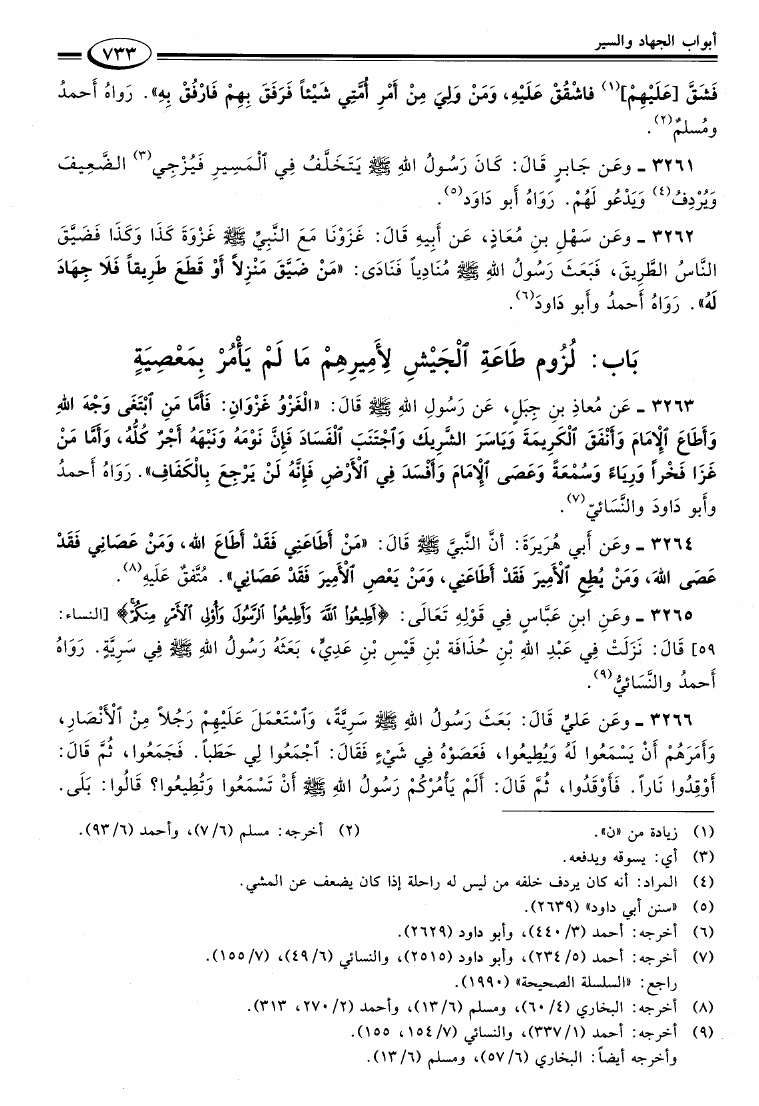 أبواب الجهاد والسير
٧٣٣
فَشَقَّ [عَلَيْهِمْ](١) فاشْقُقْ عَلَيْهِ، وَمَنْ وَلِيَ مِنْ أَمْرِ أُمَّتِي شَيْئاً فَرَفَقَ بِهِمْ فَارْفُقْ بِهِ». رَواهُ أَحمدُ
ومُسلمٌ(٢).
٣٢٦١ ـ وعَن جَابرٍ قَالَ: كَانَ رَسُولُ اللهِ ﷺ يَتَخَلَّفُ فِي ٱلْمَسِيرِ فَيُزْجِي(٣) الضَّعِيفَ
وَيُرْدِفُ(٤) وَيَدْعُو لَهُمْ. رَوَاهُ أبو دَاوَد(٥).
٣٢٦٢ ـ وعَن سَهْلِ بنِ مُعَاذٍ، عَن أَبِيهِ قَالَ: غَزَوْنَا مَعَ النَّبِيِّ ﷺ غَزْوَةَ كَذَا وَكَذَا فَضَيَّقَ
النَّاسُ الطَّرِيقَ، فَبَعَثَ رَسُولُ اللهِ ﷺ مُنَادِياً فَنَادَى: «مَنْ ضَيَّقَ مَنْزِلاً أَوْ قَطَعَ طَرِيقاً فَلَا جِهَادَ
لَهُ». رَوَاهُ أَحمدُ وأَبو دَاودَ(٦).
بَاب: لُزُوم طَاعَةِ ٱلْجَيْشِ لِأَمِيرِهِمْ مَا لَمْ يَأْمُرْ بِمَعْصِيَةٍ
٣٢٦٣ ـ عَن مُعاذِ بنِ جَبَلٍ، عَن رَسُولِ اللهِ ﷺ قَالَ: «الْغَزْوُ غَزْوَانِ: فَأَمَّا مَنِ ٱبْتَغَى وَجْهَ اللهِ
وَأَطَاعَ ٱلْإِمَامَ وَأَنْفَقَ ٱلْكَرِيمَةَ وَيَاسَرَ الشَّرِيكَ وَٱجْتَنَبَ ٱلْفَسَادَ فَإِنَّ نَوْمَهُ وَنَبْهَهُ أَجْرٌ كُلُّهُ، وَأَمَّا مَنْ
غَزَا فَخْراً وَرِيَاءً وَسُمْعَةً وَعَصَى ٱلْإِمَامَ وَأَفْسَدَ فِي ٱلْأَرْضِ فَإِنَّهُ لَنْ يَرْجِعَ بِالْكَفَافِ». رَوَاهُ أَحمدُ
وأَبو دَاودَ والنَّسَائيّ(٧).
٣٢٦٤ ـ وعَن أَبي هُرَيرَةَ: أنَّ النَّبيَّ ﷺ قَالَ: «مَنْ أَطَاعَنِي فَقَدْ أَطَاعَ الله، وَمَنْ عَصَانِي فَقَدْ
عَصَى اللهَ، وَمَنْ يُطِعِ ٱلْأَمِيرَ فَقَدْ أَطَاعَنِي، وَمَنْ يَعْصِ ٱلْأَمِيرَ فَقَدْ عَصَانِي». مُتَّفقٌ عَلَيهِ(٨).
٣٢٦٥ ـ وعَنِ ابنِ عَبَّاسٍ فِي قَوْلِهِ تَعَالَى: ﴿أَطِيعُوا۟ ٱللَّهَ وَأَطِيعُوا۟ ٱلرَّسُولَ وَأُو۟لِى ٱلْأَمْرِ مِنكُمْ﴾ [النساء:
٥٩] قَالَ: نَزَلَتْ فِي عَبْدِ اللهِ بْنِ حُذَافَة بْنِ قَيْسِ بْنِ عَدِيٍّ، بَعَثَهُ رَسُولُ اللهِ ﷺ فِي سَرِيَّةٍ. رَوَاهُ
أَحمدُ والنَّسَائيُّ(٩).
٣٢٦٦ ـ وعَن عَليٍّ قَالَ: بَعَثَ رَسُولُ اللهِ ﷺ سَرِيَّةً، وَٱسْتَعْمَلَ عَلَيْهِمْ رَجُلاً مِنَ ٱلْأَنْصَارِ،
وَأَمَرَهُمْ أَنْ يَسْمَعُوا لَهُ وَيُطِيعُوا، فَعَصَوْهُ فِي شَيْءٍ فَقَالَ: ٱجْمَعُوا لِي حَطَباً. فَجَمَعُوا، ثُمَّ قَالَ:
أَوْقِدُوا نَاراً. فَأَوْقَدُوا، ثُمَّ قَالَ: أَلَمْ يَأْمُرْكُمْ رَسُولُ اللهِ ﷺ أَنْ تَسْمَعُوا وَتُطِيعُوا؟ قَالُوا: بَلَى.
(١) زيادة من «ن». (٢) أخرجه: مسلم (٧/٦)، وأحمد (٩٣/٦).
(٣) أي: يسوقه ويدفعه.
(٤) المراد: أنه كان يردف خلفه من ليس له راحلة إذا كان يضعف عن المشي.
(٥) «سنن أبي داود» (٢٦٣٩).
(٦) أخرجه: أحمد (٤٤٠/٣)، وأبو داود (٢٦٢٩).
(٧) أخرجه: أحمد (٢٣٤/٥)، وأبو داود (٢٥١٥)، والنسائي (٤٩/٦)، (١٥٥/٧).
راجع: «السلسلة الصحيحة» (١٩٩٠).
(٨) أخرجه: البخاري (٦٠/٤)، ومسلم (١٣/٦)، وأحمد (٢٧٠/٢، ٣١٣).
(٩) أخرجه: أحمد (٣٣٧/١)، والنسائي (١٥٤/٧، ١٥٥).
وأخرجه أيضاً: البخاري (٥٧/٦)، ومسلم (١٣/٦).